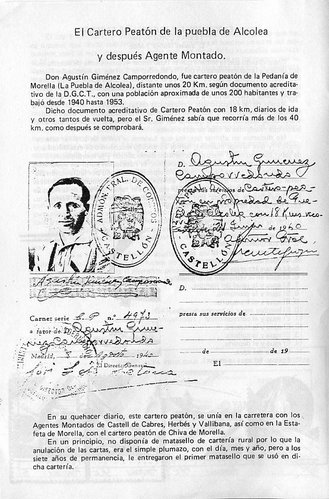 El Cartero Peatón de la puebla de Alcolea
y después Agente Montado.
Don Agustín Giménez Camporredondo, fue cartero peatón de la Pedanía de
Morella (La Puebla de Alcolea), distante unos 20 Km. según documento acredita-
tivo de la D.G.C.T., con una población aproximada de unos 200 habitantes y tra-
bajó desde 1940 hasta 1953.
Dicho documento acreditativo de Cartero Peatón con 18 km, diarios de ida
y otros tantos de vuelta, pero el Sr. Giménez sabía que recorría más de los 40
km. como después se comprobará.
D. Agustín Giménez
Camporredondo
presta sus servicios de Cartero pea-
tón en propiedad de Pue-
bla Alcolea con 18 Kms. reco-
ADMON. PRAL. DE CORREOS
CASTELLÓN
Agustín Giménez Camporredondo
Carnet serie C.P. n.º 4973
a favor de D. Agustín Gimé-
nez Camporredondo
Madrid, 8 de Agosto 1940
El Director General
D.
presta sus servicios de
de de 19
El
En su quehacer diario, este cartero peatón, se unía en la carretera con los
Agentes Montados de Castell de Cabres, Herbés y Vallibana, así como en la Esta-
feta de Morella, con el cartero peatón de Chiva de Morella.
En un principio, no disponía de matasello de cartería rural por lo que la
anulación de las cartas, era el simple plumazo, con el día, mes y año, pero a los
siete años de permanencia, le entregaron el primer matasello que se usó en di-
cha cartería.